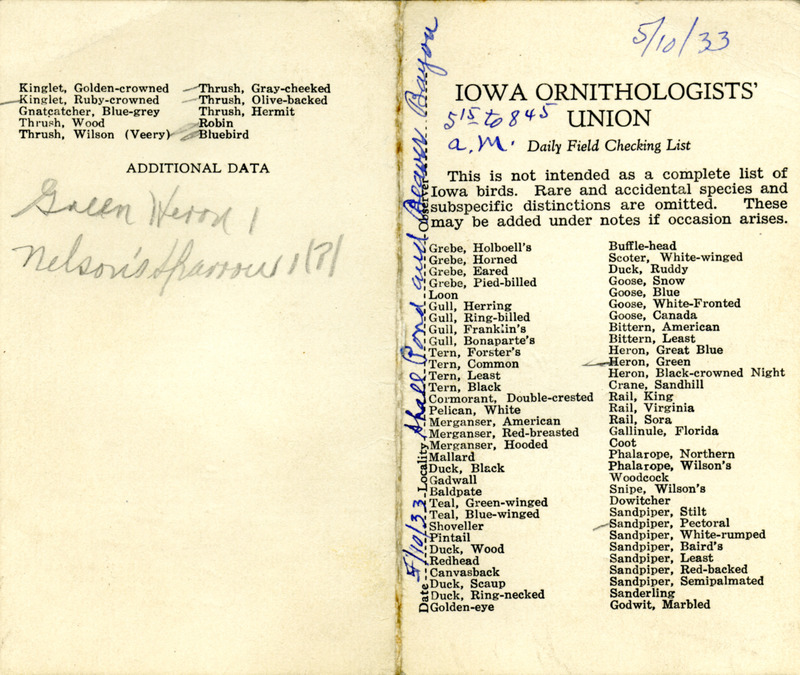 Kinglet, Golden-crowned
Kinglet, Ruby-crowned
Gnatcatcher, Blue-grey
Thrush, Wood
Thrush, Wilson (Veery)
Thrush, Gray-cheeked
Thrush, Olive-backed
Thrush, Hermit
Robin
Bluebird
ADDITIONAL DATA
Green Heron 1
Nelson's Sparrow 1(?)
Date 5/10/33 Locality Shall Pond and Beaver Bayou Observer
5/10/33
IOWA ORNITHOLOGISTS'
UNION
5 15 to 8 45
a.m.
Daily Field Checking List
This is not intended as a complete list of
Iowa birds. Rare and accidental species and
subspecific distinctions are omitted. These
may be added under notes if occasion arises.
Grebe, Holboell's
Grebe, Horned
Grebe, Eared
Grebe, Pied-billed
Loon
Gull, Herring
Gull, Ring-billed
Gull, Franklin's
Gull, Bonaparte's
Tern, Forster's
Tern, Common
Tern, Least
Tern, Black
Cormorant, Double-crested
Pelican, White
Merganser, American
Merganser, Red-breasted
Merganser, Hooded
Mallard
Duck, Black
Gadwall
Baldpate
Teal, Green-winged
Teal, Blue-winged
Shoveller
Pintail
Duck, Wood
Redhead
Canvasback
Duck, Scaup
Duck, Ring-necked
Golden-eye
Buffle-head
Scoter, White-winged
Duck, Ruddy
Goose, Snow
Goose, Blue
Goose, White-Fronted
Goose, Canada
Bittern, American
Bittern, Least
Heron, Great Blue
Heron, Green
Heron, Black-crowned Night
Crane, Sandhill
Rail, King
Rail, Virginia
Rail, Sora
Gallinule, Florida
Coot
Phalarope, Northern
Phalarope, Wilson's
Woodcock
Snipe, Wilson's
Dowitcher
Sandpiper, Stilt
Sandpiper, Pectoral
Sandpiper, White-rumped
Sandpiper, Baird's
Sandpiper, Least
Sandpiper, Red-backed
Sandpiper, Semipalmated
Sanderling
Godwit, Marbled